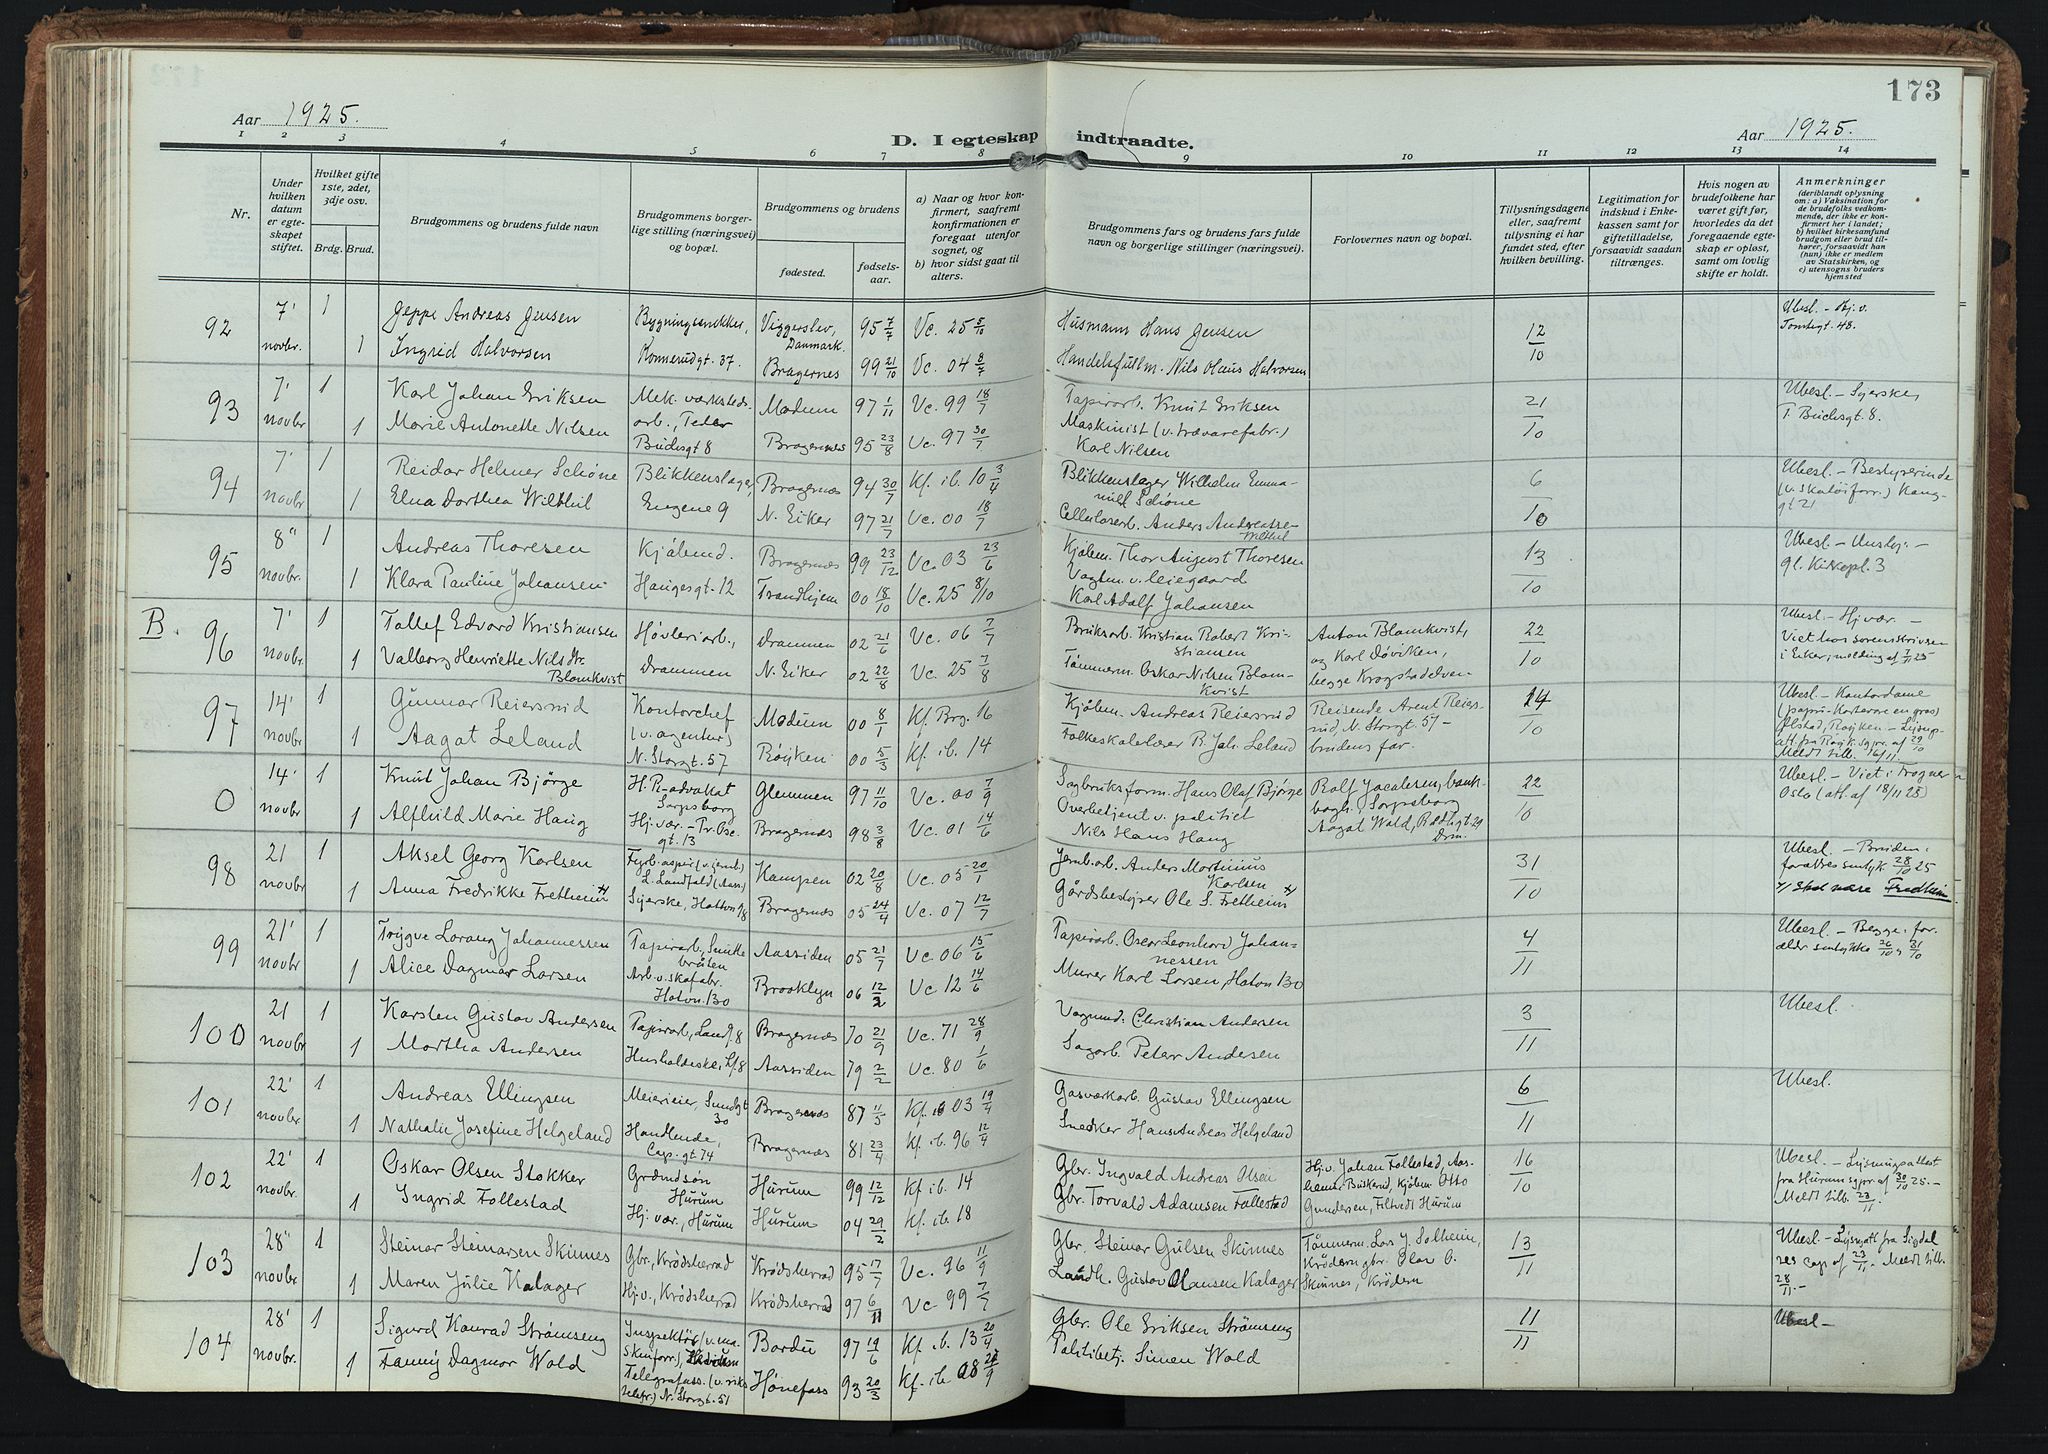 173
Aar 1925.
D. I egteskap indtraadte.
Aar 1925.
1 2 3 4 5 6 7 8 9 10 11 12 13 14
Nr.
Under hvilken datum er egteskapet stiftet.
Hvilket gifte 1ste, 2det, 3dje osv.
Brdg. Brud.
Brudgommens og brudens fulde navn
Brudgommens borgerlige stilling (næringsvei) og bopæl.
Brudgommens og brudens
fødested. fødselsaar.
a) Naar og hvor konfirmert, saafremt konfirmationen er foregaat utenfor sognet, og
b) hvor sidst gaat til alters.
Brudgommens fars og brudens fars fulde navn og borgerlige stillinger (næringsvei).
Forlovernes navn og bopæl.
Tillysningsdagene eller, saafremt tillysning ei har fundet sted, efter hvilken bevilling.
Legitimation for indskud i Enkekassen samt for giftetilladelse, forsaavidt saadan tiltrænges.
Hvis nogen av brudefolkene har været gift før, hvorledes da det foregaaende egteskap er opløst, samt om lovlig skifte er holdt.
Anmerkninger
(deriblandt oplysning om: a) Vaksination for de brudefolks vedkommende, der ikke er konfirmert her i landet; b) hvilket kirkesamfund brudgom eller brud tilhører, forsaavidt han (hun) ikke er medlem av Statskirken, og c) utensogns bruders hjemsted
92 7' novbr. 1 Jeppe Andreas Jensen Bygningssnekker, Viggerslev, Danmark. 95 7/7 Vc. 25 5/10 Husmann Hans Jensen 12/10 Ubesl. – Hj. v. Tomtegt. 48.
1 Ingrid Halvorsen Konnerudgt. 37. Bragernes 99 21/10 Vc. 04 8/7 Handelsfullm. Nils Olaus Halvorsen
93 7' novbr 1 Karl Johan Eriksen Mek. værkstedsarb., Peder Modum 97 1/11 Vc. 99 18/7 Papirarb. Knut Eriksen 21/10 Ubesl. – Syerske,
1 Marie Antonette Nilsen Buchsgt 8 Bragernes 95 23/8 Vc. 97 30/7 Maskinist (v. trævarefabr.) Karl Nilsen P. Buchsgt. 8.
94 7' novbr 1 Reidar Helmer Schøne Blikkenslager, Bragernæs 94 30/7 Kf. ib. 10 3/4 Blikkenslager Wilhelm Emmanuel Schøne 6/10 Ubesl. – Bestyrerinde
1 Elna Dorthea Wilthil Engene 9 N. Eiker 97 21/7 Vc. 00 18/7 Cellulosearb. Anders Andreassen Wilthil (v. skotøiforr.) Haugsgt 21
95 8' novbr. 1 Andreas Thoresen Kjøbmd. Bragernæs 99 23/12 Vc. 03 23/6 Kjøbm. Thor August Thoresen 13/10 Ubesl. –
1 Klara Pauline Johansen Haugesgt. 12 Trondhjem 00 18/10 Vc. 25 8/10 Vagtm. v. Karl Adolf Johansen gl. Kirkepl. 3
B. 96 7' novbr. 1 Tollef Edvard Kristiansen Høvleriarb., Drammen 02 21/6 Vc. 06 7/7 Bruksarb. Kristian Robert Kristiansen Anton Blomkvist, 22/10 Ubesl. – Hj vær. –
1 Valborg Henriette Nilsdtr. Blomkvist Drammen N. Eiker 02 22/8 Vc. 25 7/8 Tømmerm. Oskar Nilsen Blomkvist og Karl Døviken, begge Krogstadelven Viet hos sorenskriveren i Eiker; melding af 7/11 25
97 14' novbr. 1 Gunnar Reiersrud Kontorchef (v. agentur) Modum 00 8/1 Kf. Brg. 16 Kjøbm. Andreas Reiersrud Reisende Arent Reiersrud, N. Storgt. 57 – 24/10 Ubesl. – Kontordame
1 Aagot Leland N. Storgt. 57 Røyken 00 5/3 Kf. ib. 14 Folkeskolelærer R. Joh. Leland brudens far. Røyken – Meldt tilb. 16/11.
0 14' novbr. 1 Knut Johan Bjørge H. R-advokat Sarpsborg Glemmen 97 11/10 Vc. 00 7/9 Sagbruksform. Hans Olaf Bjørge Rolf Jacobsen, bankbogh. Sarpsborg 22/10 Ubesl. – Viet i Frogner
1 Alfhild Marie Haug Hj. vær. – gt. 13 Bragernæs 98 3/8 Vc. 01 14/6 Overbetjent v. politiet Nils Hans Haug Aagot Wold, Rådhgt 29 Drm. Oslo (att. af 18/11 25)
98 21 novbr. 1 Aksel Georg Karlsen Fyrb. aspir. (v. jernb.) L. Landfald (Aass.) Kampen 02 20/8 Vc. 05 20/1 Jernb. arb. Anders Martinius Karlsen 31/10 Ubesl. – Bruden: forældres samtyk 28/10 25
1 Anna Fredrikke Fretheim x) Syerske, Hotton 98 Bragernæs 05 24/4 Vc. 07 12/7 Gårdsbestyrer Ole S. Fretheim x) x) skal være Fredheim
99 21' novbr. 1 Trygve Lorang Johannessen Papirarb., Smittebråten Aassiden 05 21/7 Vc. 06 15/6 Papirarb. Oscar Leonhard Johannessen 4/11 Ubesl. – Begge: forælder samtykke 26/10 & 31/10
1 Alice Dagmar Larsen Arb. v. skofabr. Hoton. 130 Brooklyn 06 12/2 Vc 12 14/6 Murer Karl Larsen, Hoton 130
100 21 novbr 1 Karsten Gustav Andersen Papirarb., Landf. 8 Bragernæs 70 21/9 Vc. 71 28/9 Vognmd: Christian Andersen 3/11 Ubesl.
1 Martha Andersen Husholderske, Lf. 8 Aassiden 79 2/2 Vc. 80 1/6 Sagarb. Peter Andersen
101 22' novbr. 1 Andreas Ellingsen Meierieier, Sundgt 30 Bragernæs 87 11/5 Kf. ib 03 19/4 Gasværkarb. Gustav Ellingsen 6/11 Ubesl.
1 Nathalie Josefine Helgeland Handlende, Cap. gt. 74 Bragernæs 81 23/4 Kf. ib. 96 12/4 Snedker Hans Andreas Helgeland
102 22' novbr. 1 Oskar Olsen Stokker Grdmdsøn Hurum Hurum 99 12/12 Kf ib. 14 Gbr. Ingvald Andreas Olsen Hj. v. Johan Follestad, Aashemer Buskerud, Kjøbm. Otto 16/10 Ubesl. – Lysningsattest
1 Ingrid Follestad Hj. vær., Hurum Hurum 04 29/2 Kf. ib. 18 Gbr. Torvald Adamsen Follestad Gundersen, Filtvedt Hurum fra Hurum sgpr. af 30/10 25. – Meldt tilb. 23/11.
103 28' novbr. 1 Steinar Steinarsen Skinnes Gbr., Krødsherrad Krødsherrad 95 17/7 Vc. 96 11/9 Gbr. Steinar Gulsen Skinnes Tømmerm. Lars J. Solheim, 13/11 Ubesl. – Lysnatt. fra Sigdal
1 Maren Julie Kalager Hj. v., Krødsherrad Krødsherrad 97 6/11 Vc. 99 7/7 Landh. Gustav Olausen Kalager Krødern, gbr. Olav O. Skinnes, Krødern res cap af 23/11. – Meldt tilb. 28/11. –
104 28' novbr. 1 Sigurd Konrad Strømseng Inspektør (v. maskinforr.), Bardu 97 19/6 Kf. ib. 13 20/4 Gbr. Ole Eriksen Strømseng 11/11 Ubesl –
1 Fanny Dagmar Wold Telegrafass. (v. rikstelefr.) N. Storgt. 51 Hønefoss 93 20/3 Kf. ib 08 27/9 Politibetj. Simen Wold